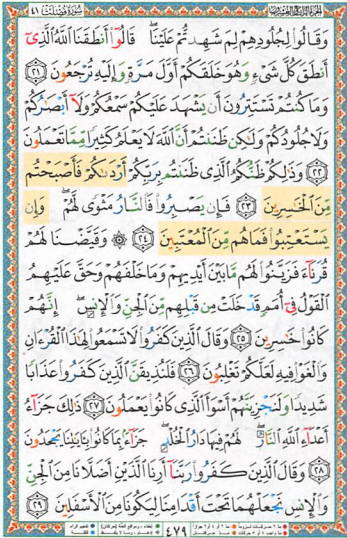 سورة فصلت ٤١
وَقَالُوا۟ لِجُلُودِهِمْ لِمَ شَهِدتُّمْ عَلَيْنَا ۖ قَالُوٓا۟ أَنطَقَنَا ٱللَّهُ ٱلَّذِىٓ
أَنطَقَ كُلَّ شَىْءٍ وَهُوَ خَلَقَكُمْ أَوَّلَ مَرَّةٍ وَإِلَيْهِ تُرْجَعُونَ ٢١
وَمَا كُنتُمْ تَسْتَتِرُونَ أَن يَشْهَدَ عَلَيْكُمْ سَمْعُكُمْ وَلَآ أَبْصَـٰرُكُمْ
وَلَا جُلُودُكُمْ وَلَـٰكِن ظَنَنتُمْ أَنَّ ٱللَّهَ لَا يَعْلَمُ كَثِيرًا مِّمَّا تَعْمَلُونَ
٢٢ وَذَٰلِكُمْ ظَنُّكُمُ ٱلَّذِى ظَنَنتُم بِرَبِّكُمْ أَرْدَىٰكُمْ فَأَصْبَحْتُم
مِّنَ ٱلْخَـٰسِرِينَ ٢٣ فَإِن يَصْبِرُوا۟ فَٱلنَّارُ مَثْوًى لَّهُمْ ۖ وَإِن
يَسْتَعْتِبُوا۟ فَمَا هُم مِّنَ ٱلْمُعْتَبِينَ ٢٤ ۞ وَقَيَّضْنَا لَهُمْ
قُرَنَآءَ فَزَيَّنُوا۟ لَهُم مَّا بَيْنَ أَيْدِيهِمْ وَمَا خَلْفَهُمْ وَحَقَّ عَلَيْهِمُ
ٱلْقَوْلُ فِىٓ أُمَمٍ قَدْ خَلَتْ مِن قَبْلِهِم مِّنَ ٱلْجِنِّ وَٱلْإِنسِ ۖ إِنَّهُمْ
كَانُوا۟ خَـٰسِرِينَ ٢٥ وَقَالَ ٱلَّذِينَ كَفَرُوا۟ لَا تَسْمَعُوا۟ لِهَـٰذَا ٱلْقُرْءَانِ
وَٱلْغَوْا۟ فِيهِ لَعَلَّكُمْ تَغْلِبُونَ ٢٦ فَلَنُذِيقَنَّ ٱلَّذِينَ كَفَرُوا۟ عَذَابًا
شَدِيدًا وَلَنَجْزِيَنَّهُمْ أَسْوَأَ ٱلَّذِى كَانُوا۟ يَعْمَلُونَ ٢٧ ذَٰلِكَ جَزَآءُ
أَعْدَآءِ ٱللَّهِ ٱلنَّارُ ۖ لَهُمْ فِيهَا دَارُ ٱلْخُلْدِ ۖ جَزَآءًۢ بِمَا كَانُوا۟ بِـَٔايَـٰتِنَا يَجْحَدُونَ
٢٨ وَقَالَ ٱلَّذِينَ كَفَرُوا۟ رَبَّنَآ أَرِنَا ٱلَّذَيْنِ أَضَلَّانَا مِنَ ٱلْجِنِّ
وَٱلْإِنسِ نَجْعَلْهُمَا تَحْتَ أَقْدَامِنَا لِيَكُونَا مِنَ ٱلْأَسْفَلِينَ ٢٩
٤٧٩